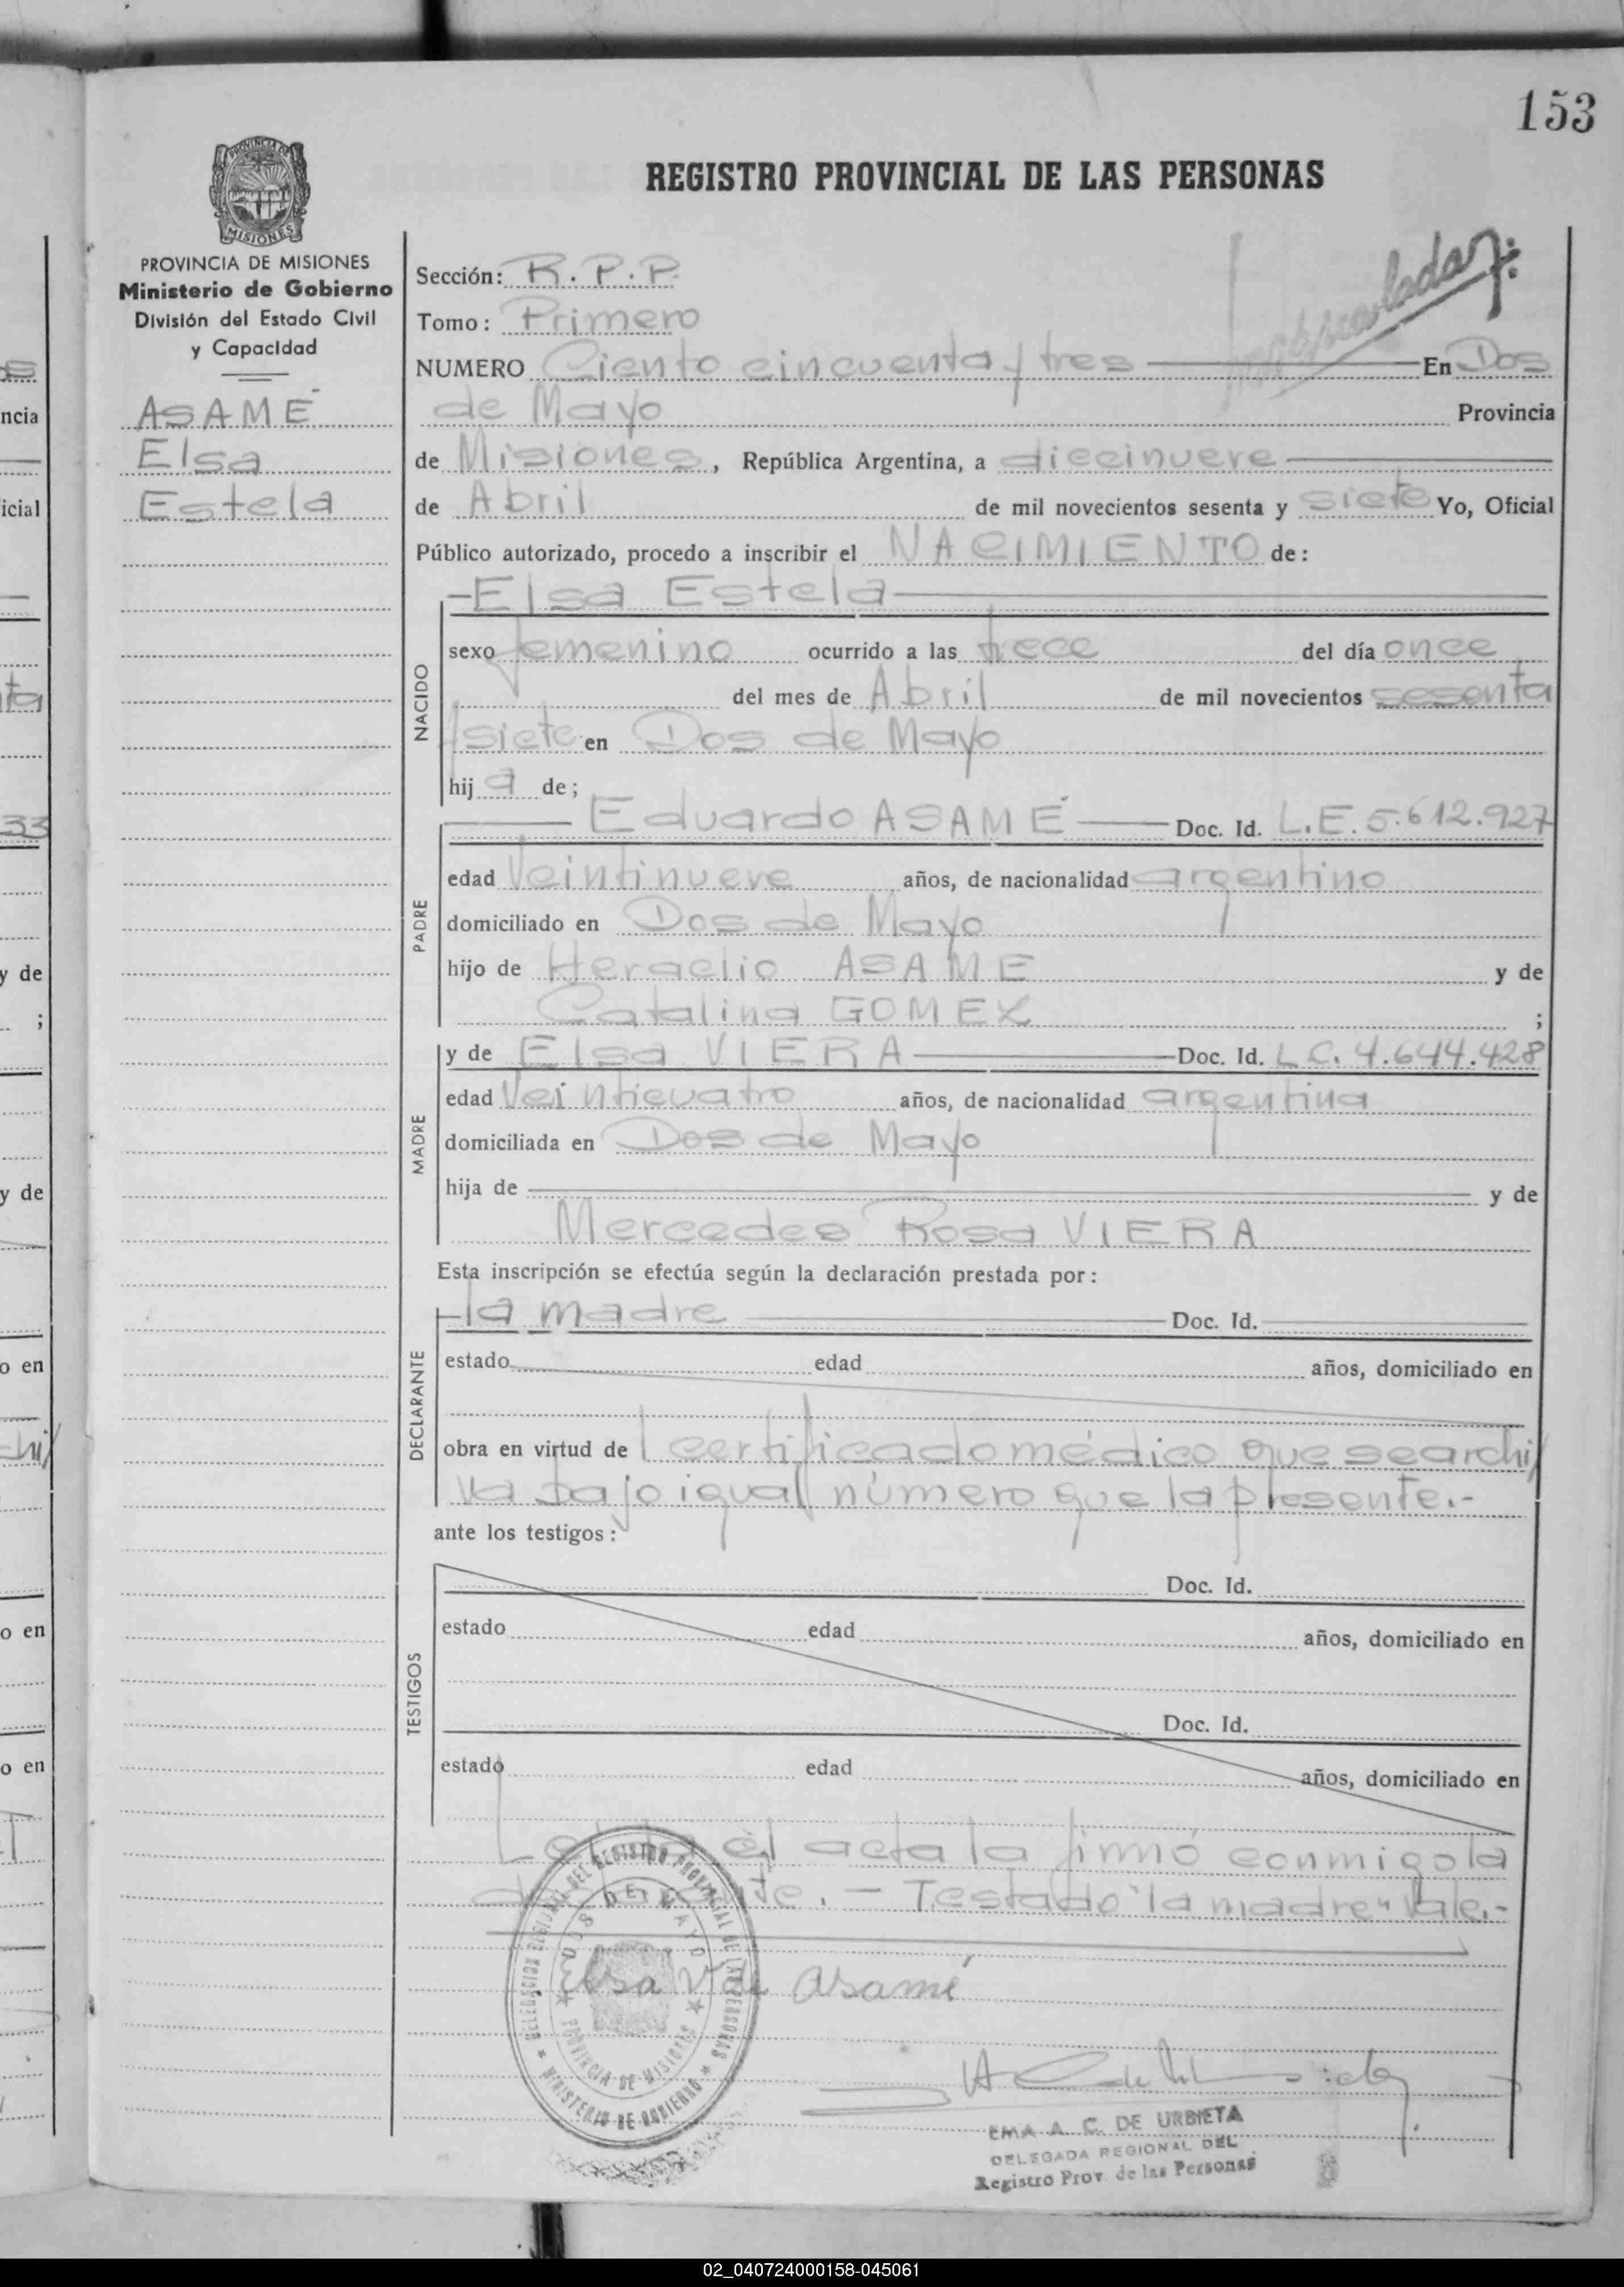 153
REGISTRO PROVINCIAL DE LAS PERSONAS
PROVINCIA DE MISIONES
Ministerio de Gobierno
División del Estado Civil
y Capacidad
ASAMÉ
Elsa
Estela
Sección: R.P.P.
Tomo: Primero
NUMERO Ciento cincuenta y tres En Dos
de Mayo Provincia
de Misiones, República Argentina, a diecinueve
de Abril de mil novecientos sesenta y siete Yo, Oficial
Público autorizado, procedo a inscribir el NACIMIENTO de:
NACIDO
Elsa Estela
sexo femenino ocurrido a las trece del día once
del mes de Abril de mil novecientos sesenta
y siete en Dos de Mayo
hij a de;
PADRE
Eduardo ASAMÉ Doc. Id. L.E. 5.612.927
edad veintinueve años, de nacionalidad argentino
domiciliado en Dos de Mayo
hijo de Heraclio ASAME y de
Catalina GOMEZ ;
MADRE
y de Elsa VIERA Doc. Id. L.C. 4.644.428
edad veinticuatro años, de nacionalidad argentina
domiciliada en Dos de Mayo
hija de y de
Mercedes Rosa VIERA
Esta inscripción se efectúa según la declaración prestada por:
DECLARANTE
la madre Doc. Id.
estado edad años, domiciliado en
obra en virtud de l certificado médico que se archi/
va bajo igual número que la presente.-
ante los testigos:
TESTIGOS
Doc. Id.
estado edad años, domiciliado en
Doc. Id.
estado edad años, domiciliado en
el acta la firmó conmigo la
. - Testado "la madre" Vale.-
Elsa V de Asamé
DELEGACION REGIONAL DEL REGISTRO PROVINCIAL DE LAS PERSONAS
DOS DE MAYO
PROVINCIA DE MISIONES
MINISTERIO DE GOBIERNO
EMA A. C. DE URBIETA
DELEGADA REGIONAL DEL
Registro Prov. de las Personas
02_040724000158-045061